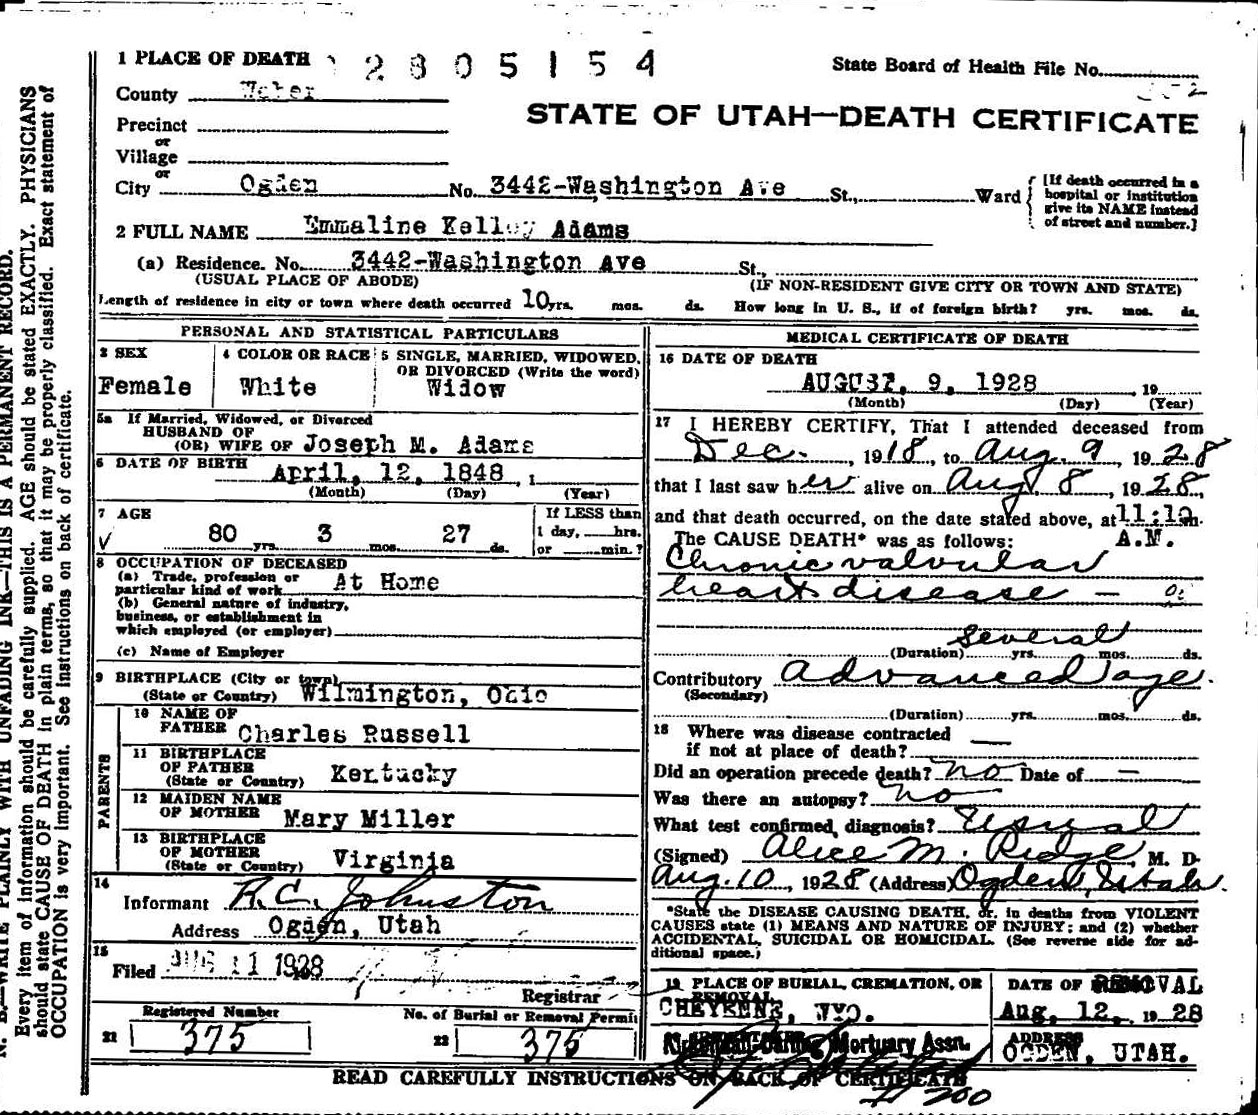 1 PLACE OF DEATH 2805154
State Board of Health File No.
County Weber
STATE OF UTAH—DEATH CERTIFICATE
Precinct
or
Village
or
City Ogden No. 3442-Washington Ave St., Ward [If death occurred in a hospital or institution give its NAME instead of street and number.]
2 FULL NAME Emmaline Kelley Adams
(a) Residence. No. 3442-Washington Ave St.,
(USUAL PLACE OF ABODE) (IF NON-RESIDENT GIVE CITY OR TOWN AND STATE)
Length of residence in city or town where death occurred 10 yrs. mos. ds. How long in U. S., if of foreign birth? yrs. mos. ds.
PERSONAL AND STATISTICAL PARTICULARS
3 SEX
Female
4 COLOR OR RACE
White
5 SINGLE, MARRIED, WIDOWED, OR DIVORCED (Write the word)
Widow
5a If Married, Widowed, or Divorced
HUSBAND OF
(OR) WIFE OF Joseph M. Adams
6 DATE OF BIRTH
April, 12, 1848, 1
(Month) (Day) (Year)
7 AGE
80 yrs. 3 mos. 27 ds.
If LESS than
1 day, hrs.
or min.?
8 OCCUPATION OF DECEASED
(a) Trade, profession or
particular kind of work At Home
(b) General nature of industry,
business, or establishment in
which employed (or employer)
(c) Name of Employer
9 BIRTHPLACE (City or town)
(State or Country) Wilmington, Ohio
PARENTS
10 NAME OF
FATHER Charles Russell
11 BIRTHPLACE
OF FATHER
(State or Country) Kentucky
12 MAIDEN NAME
OF MOTHER Mary Miller
13 BIRTHPLACE
OF MOTHER
(State or Country) Virginia
14
Informant R.C. Johnston
Address Ogden, Utah
15
Filed AUG 11 1928
Registrar
Registered Number
21 375
No. of Burial or Removal Permit
22 375
MEDICAL CERTIFICATE OF DEATH
16 DATE OF DEATH
AUGUST, 9, 1928, 19
(Month) (Day) (Year)
17 I HEREBY CERTIFY, That I attended deceased from
Dec. , 1918, to Aug. 9 1928
that I last saw her alive on Aug. 8, 1928,
and that death occurred, on the date stated above, at 11:10 m.
The CAUSE DEATH* was as follows: A.M.
Chronic valvular
heart disease —
several
(Duration) yrs. mos. ds.
Contributory Advanced age.
(Secondary)
(Duration) yrs. mos. ds.
18 Where was disease contracted
if not at place of death? —
Did an operation precede death? no Date of —
Was there an autopsy? no
What test confirmed diagnosis? Usual
(Signed) Alice M. Ridge, M. D.
Aug. 10, 1928 (Address) Ogden, Utah.
*State the DISEASE CAUSING DEATH, or, in deaths from VIOLENT
CAUSES state (1) MEANS AND NATURE OF INJURY; and (2) whether
ACCIDENTAL, SUICIDAL OR HOMICIDAL. (See reverse side for ad-
ditional space.)
19 PLACE OF BURIAL, CREMATION, OR
REMOVAL
CHEYENNE, WYO.
DATE OF REMOVAL
Aug, 12, 1928
Mortuary Assn.
ADDRESS
OGDEN, UTAH.
READ CAREFULLY INSTRUCTIONS ON BACK OF CERTIFICATE
200
N. B.—WRITE PLAINLY WITH UNFADING INK—THIS IS A PERMANENT RECORD.
Every item of information should be carefully supplied. AGE should be stated EXACTLY. PHYSICIANS
should state CAUSE OF DEATH in plain terms, so that it may be properly classified. Exact statement of
OCCUPATION is very important. See instructions on back of certificate.